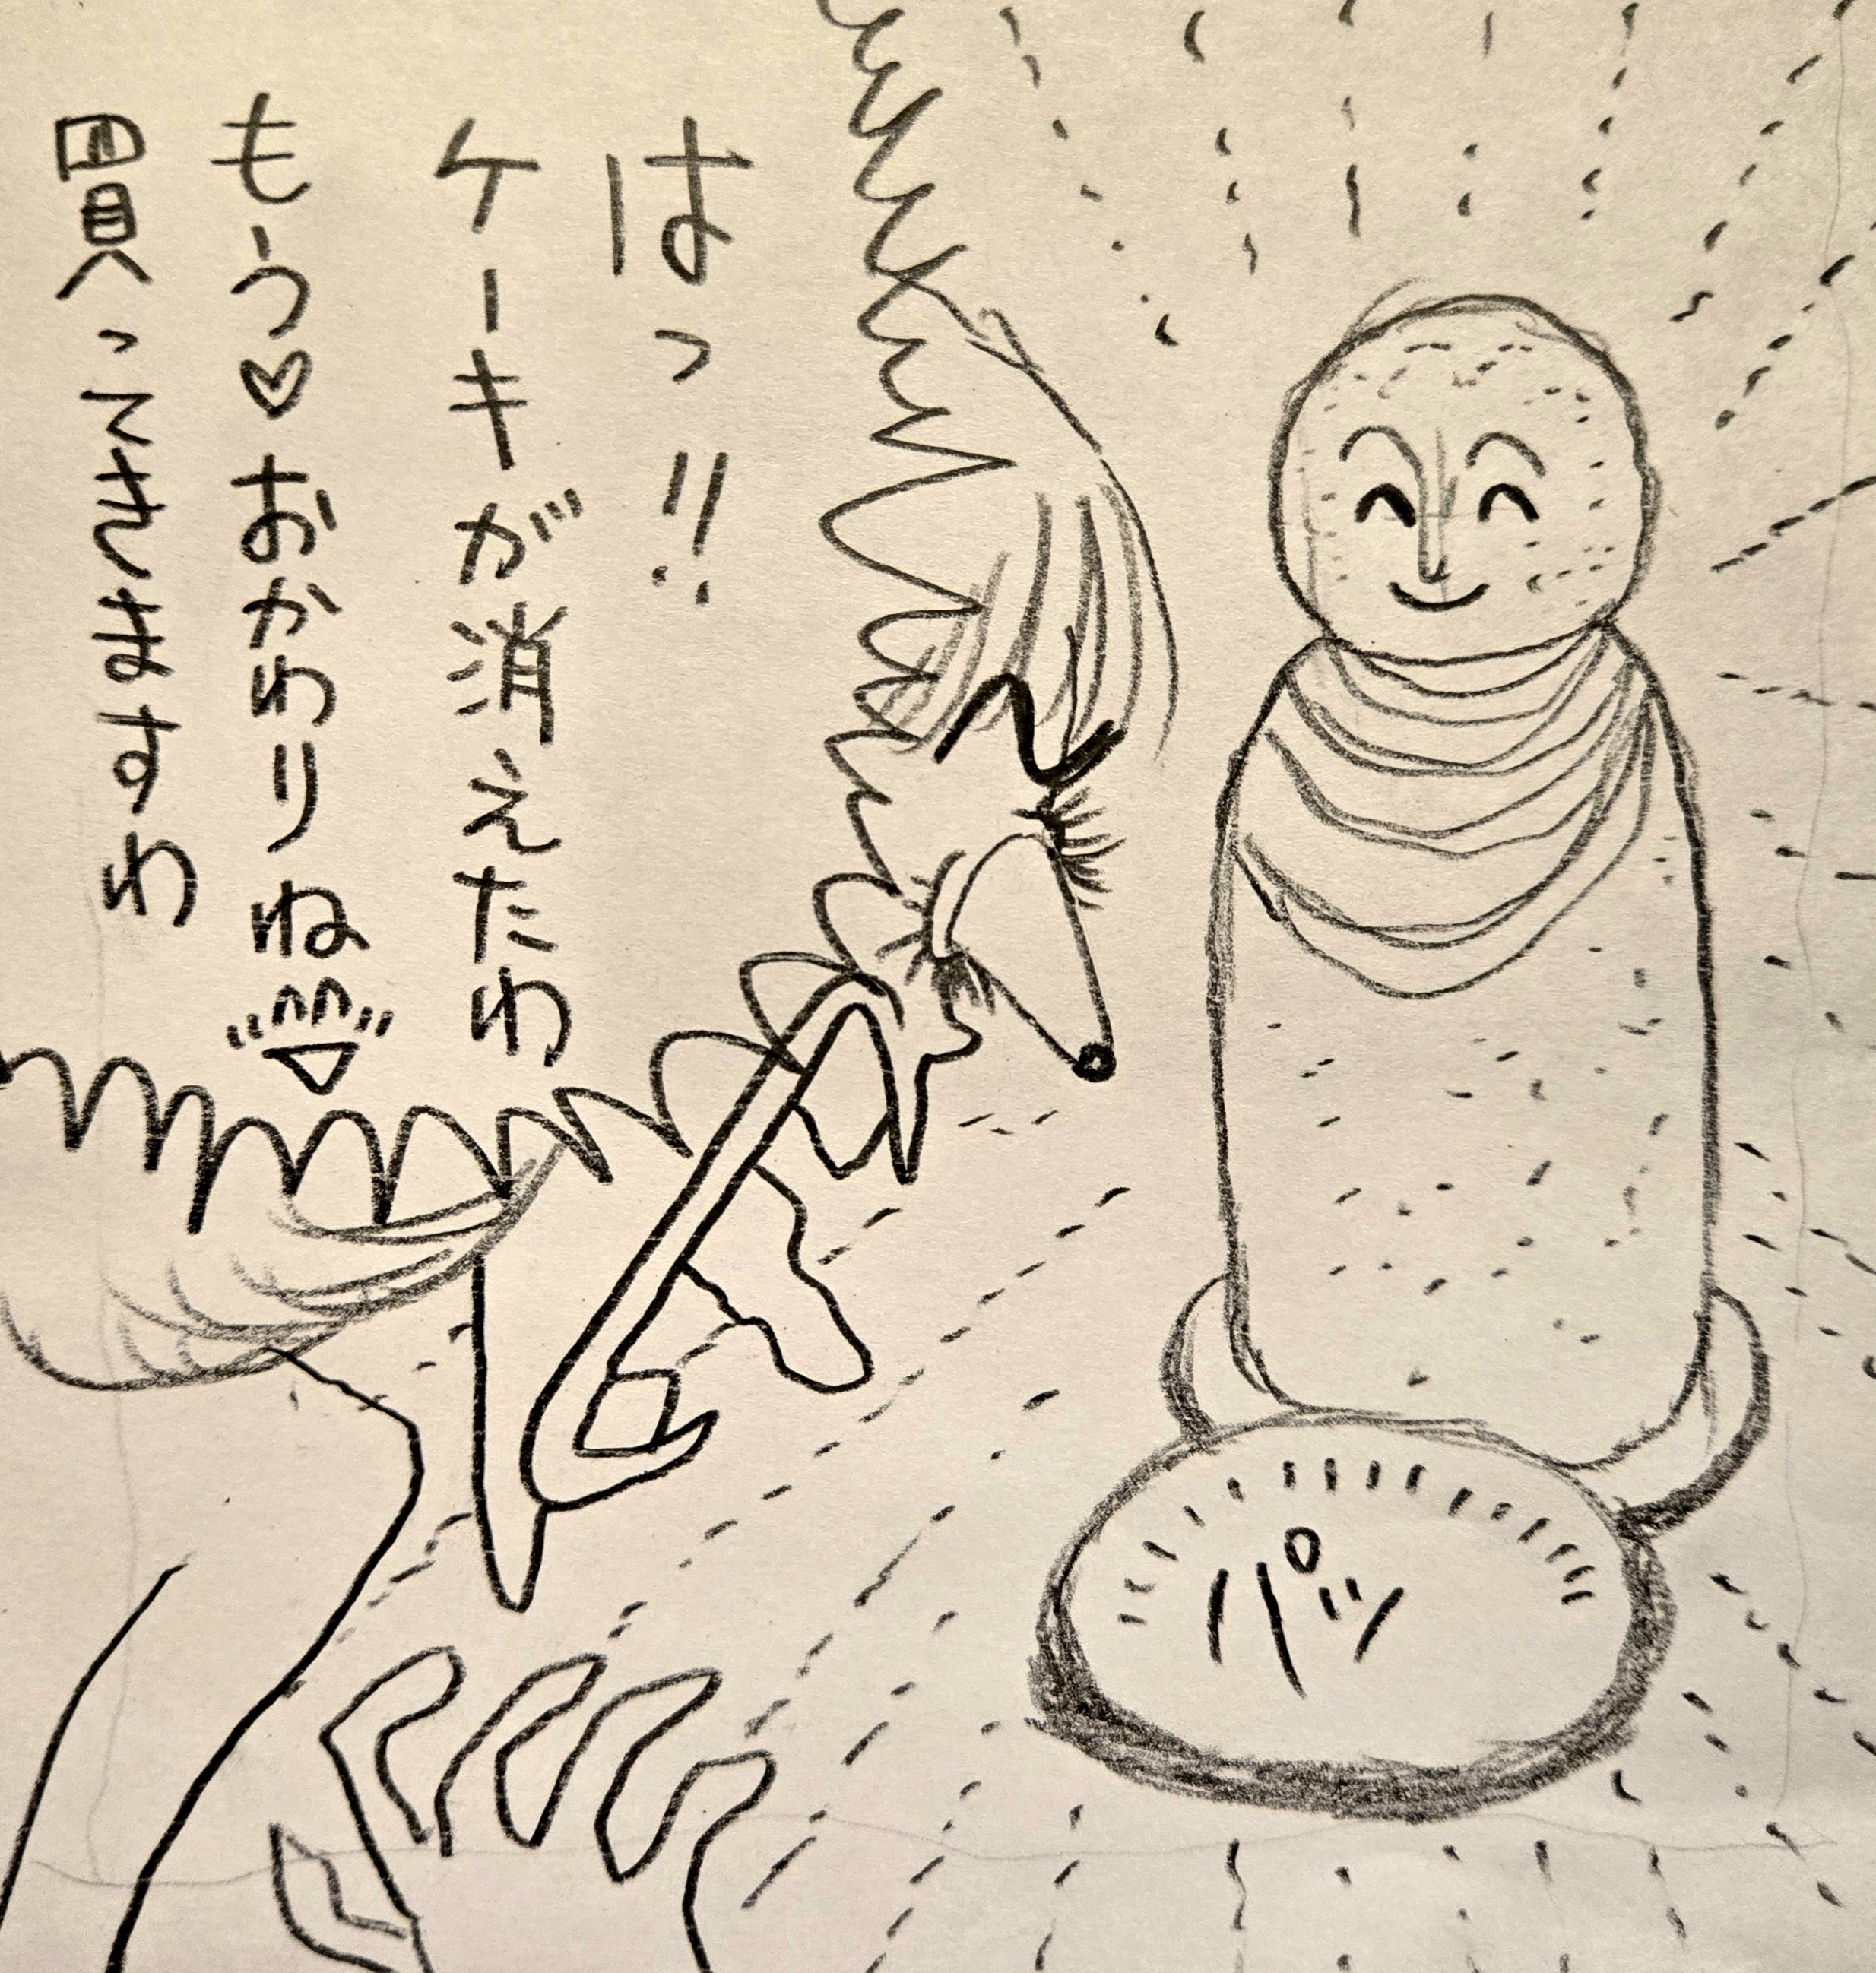 はっ!!
ケーキが消えたわ
もう♡おかわりね
買ってきますわ
パッ